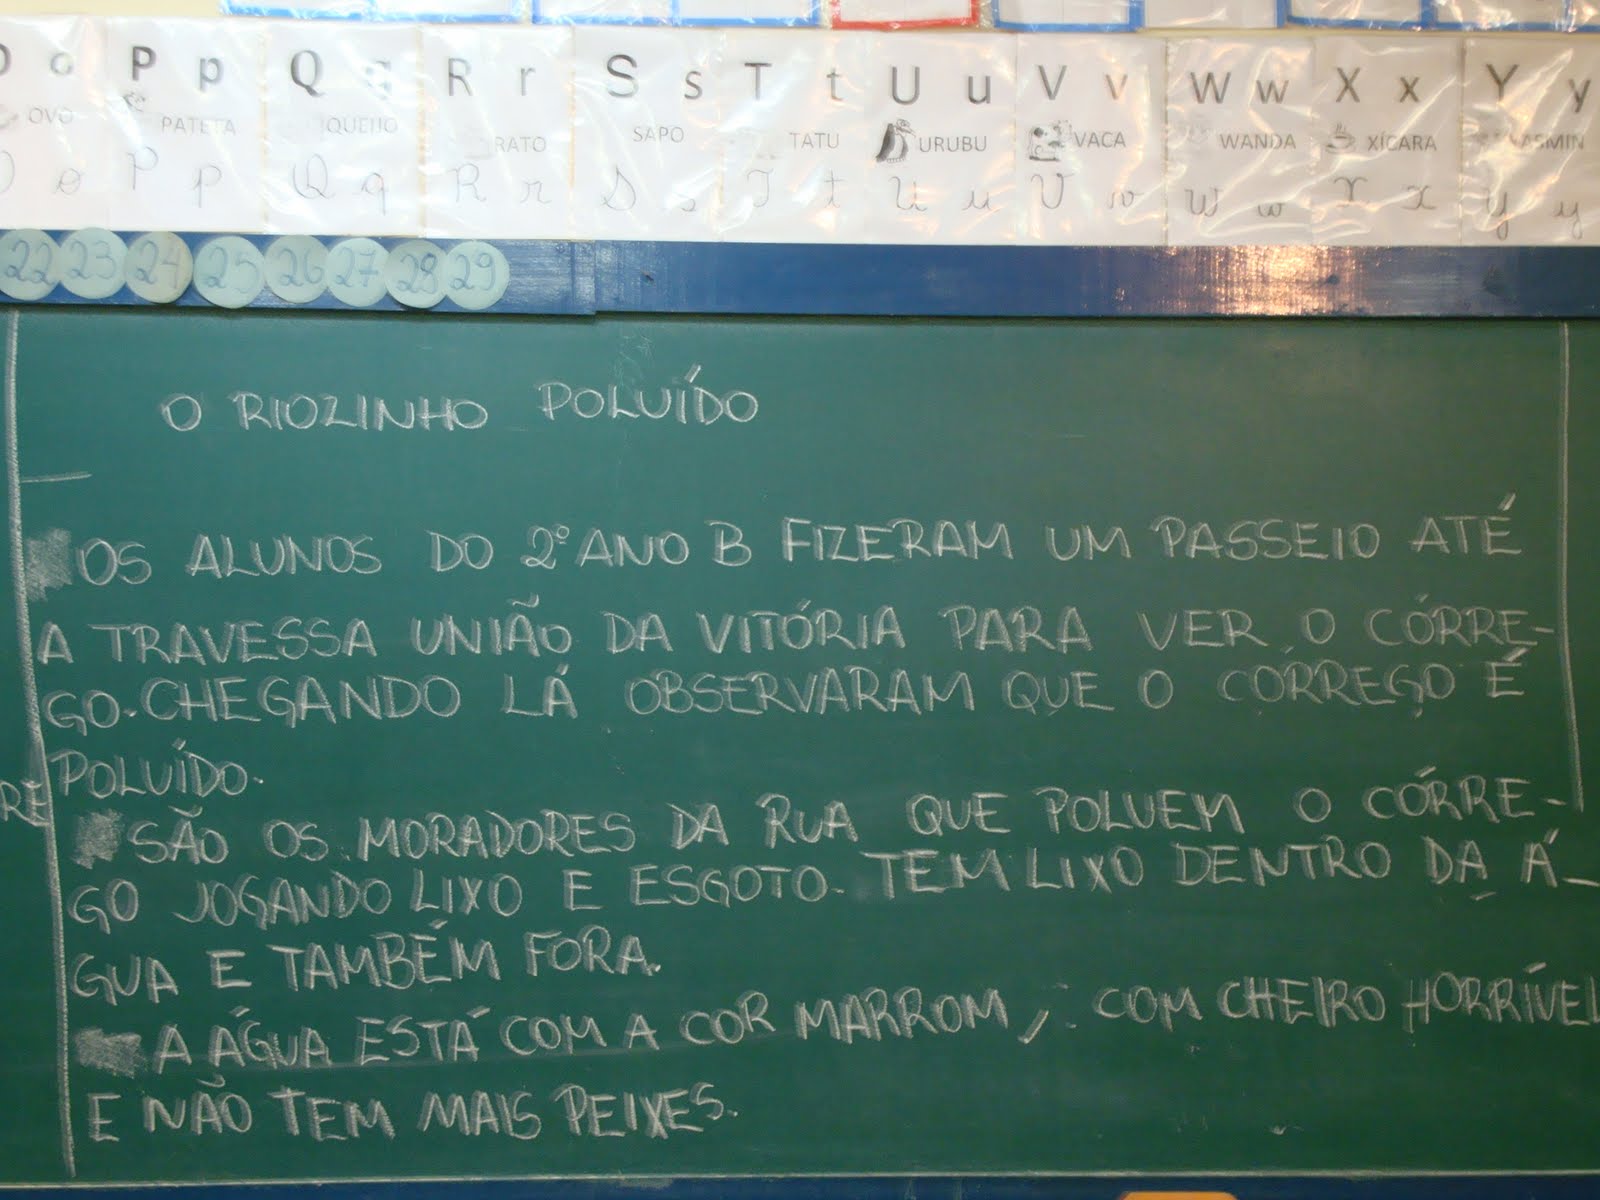 O o P p Q q R r S s T t U u V v W w X x Y y
OVO PATETA QUEIJO RATO SAPO TATU URUBU VACA WANDA XÍCARA YASMIN
O o P p Q q R r S s T t U u V v W w X x Y y
22 23 24 25 26 27 28 29
O RIOZINHO POLUÍDO
OS ALUNOS DO 2º ANO B FIZERAM UM PASSEIO ATÉ
A TRAVESSA UNIÃO DA VITÓRIA PARA VER O CÓRRE-
GO. CHEGANDO LÁ OBSERVARAM QUE O CÓRREGO É
POLUÍDO.
RE
SÃO OS MORADORES DA RUA QUE POLUEM O CÓRRE-
GO JOGANDO LIXO E ESGOTO. TEM LIXO DENTRO DA Á-
GUA E TAMBÉM FORA.
A ÁGUA ESTÁ COM A COR MARROM, COM CHEIRO HORRÍVEL
E NÃO TEM MAIS PEIXES.